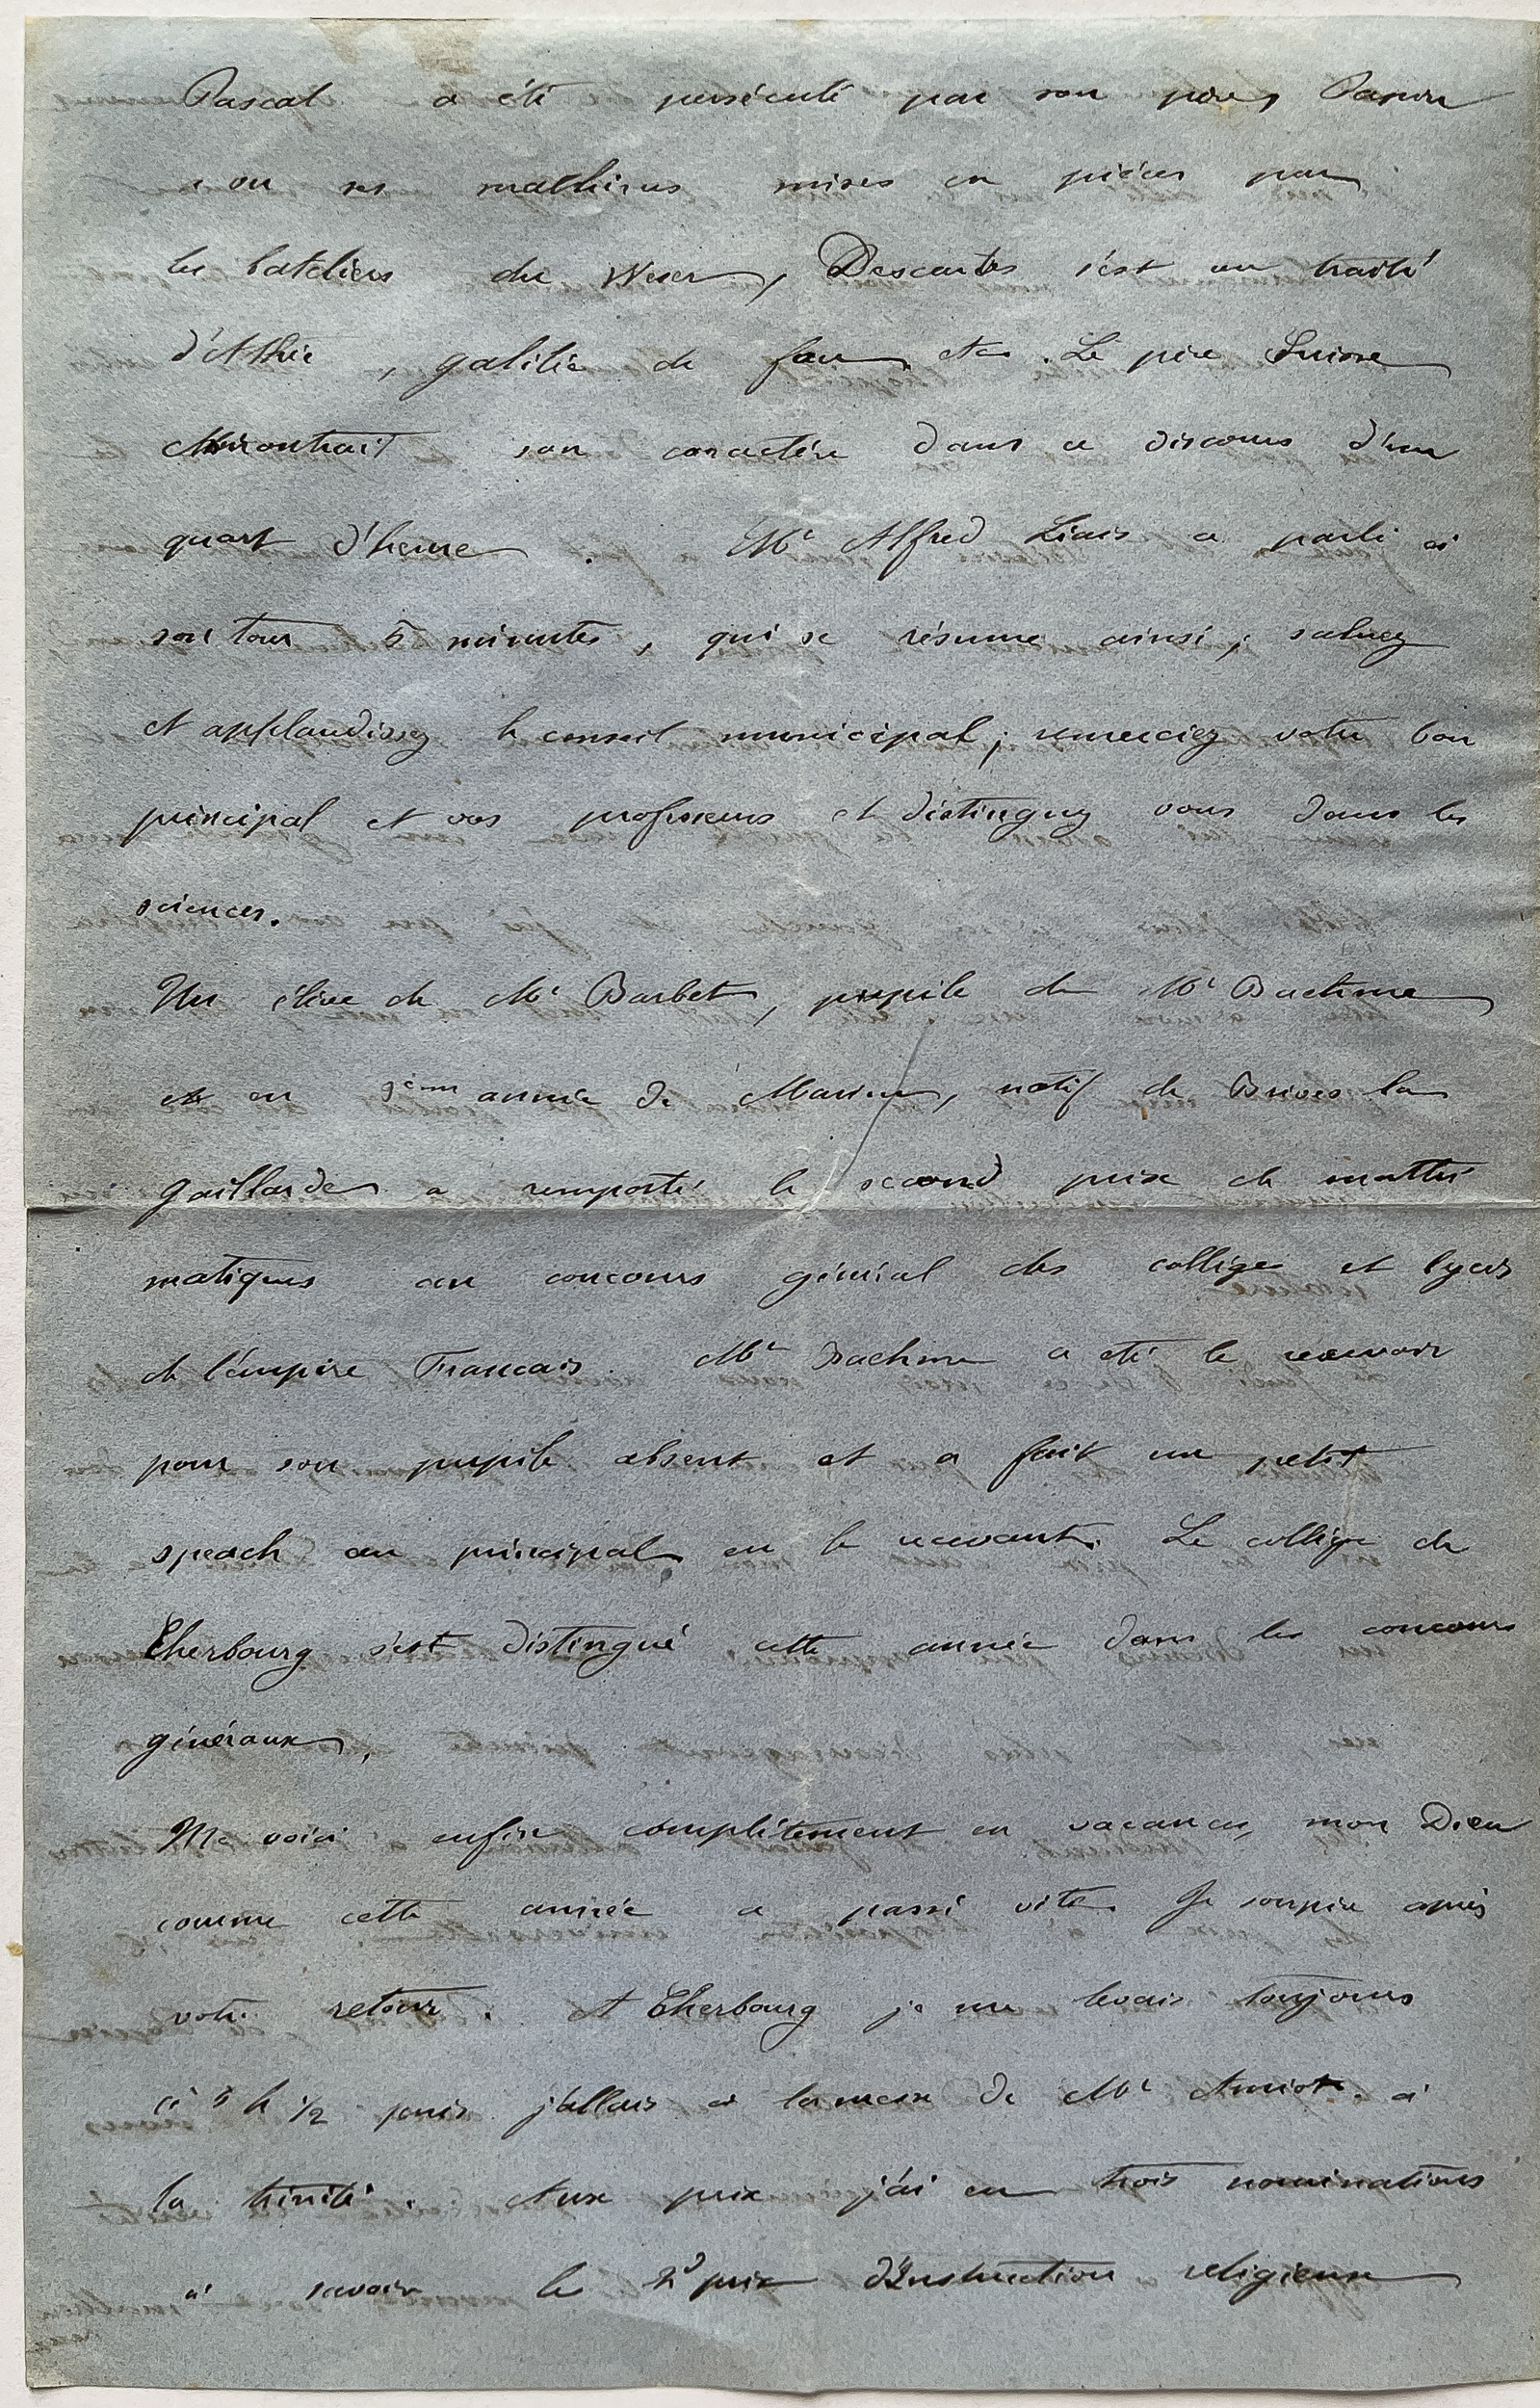 Pascal a été persécuté par son père, Papin
a eu ses mathines mises en pièces par
les bateliers du Weser, Descartes s'est vu traité
d'Athée, galilée de fou etc. Le père Suisse
montrait son caractère dans ce discours d'un
quart d'heure. Mr Alfred Liais a parlé à
son tour 5 minutes, qui se résume ainsi; saluez
et applaudissez le conseil municipal; remerciez votre bon
principal et vos professeurs et distinguez vous dans les
sciences.
Un élève de Mr Barbet, pupile de Mr Dachme
et en 3ème année de Marine, natif de Brives la
gaillarde a remporté le second prix de mathé
matiques au concours général des collège et lycés
de l'empire Francais. Mr Dachme a été le recevoir
pour son pupile absent et a fait un petit
speach au principal en le recevant. Le collège de
Cherbourg s'est distingué cette année dans les concours
généraux.
Me voici enfin complètement en vacances, mon Dieu
comme cette année a passé vite. Je soupire après
votre retour. A Cherbourg je me levais toujours
à 5 h 1/2 puis j'allais à la messe de Mr Amiot à
la trinité. Aux prix j'ai eu trois nominations
à savoir le 2d prix d'Instruction religieuse